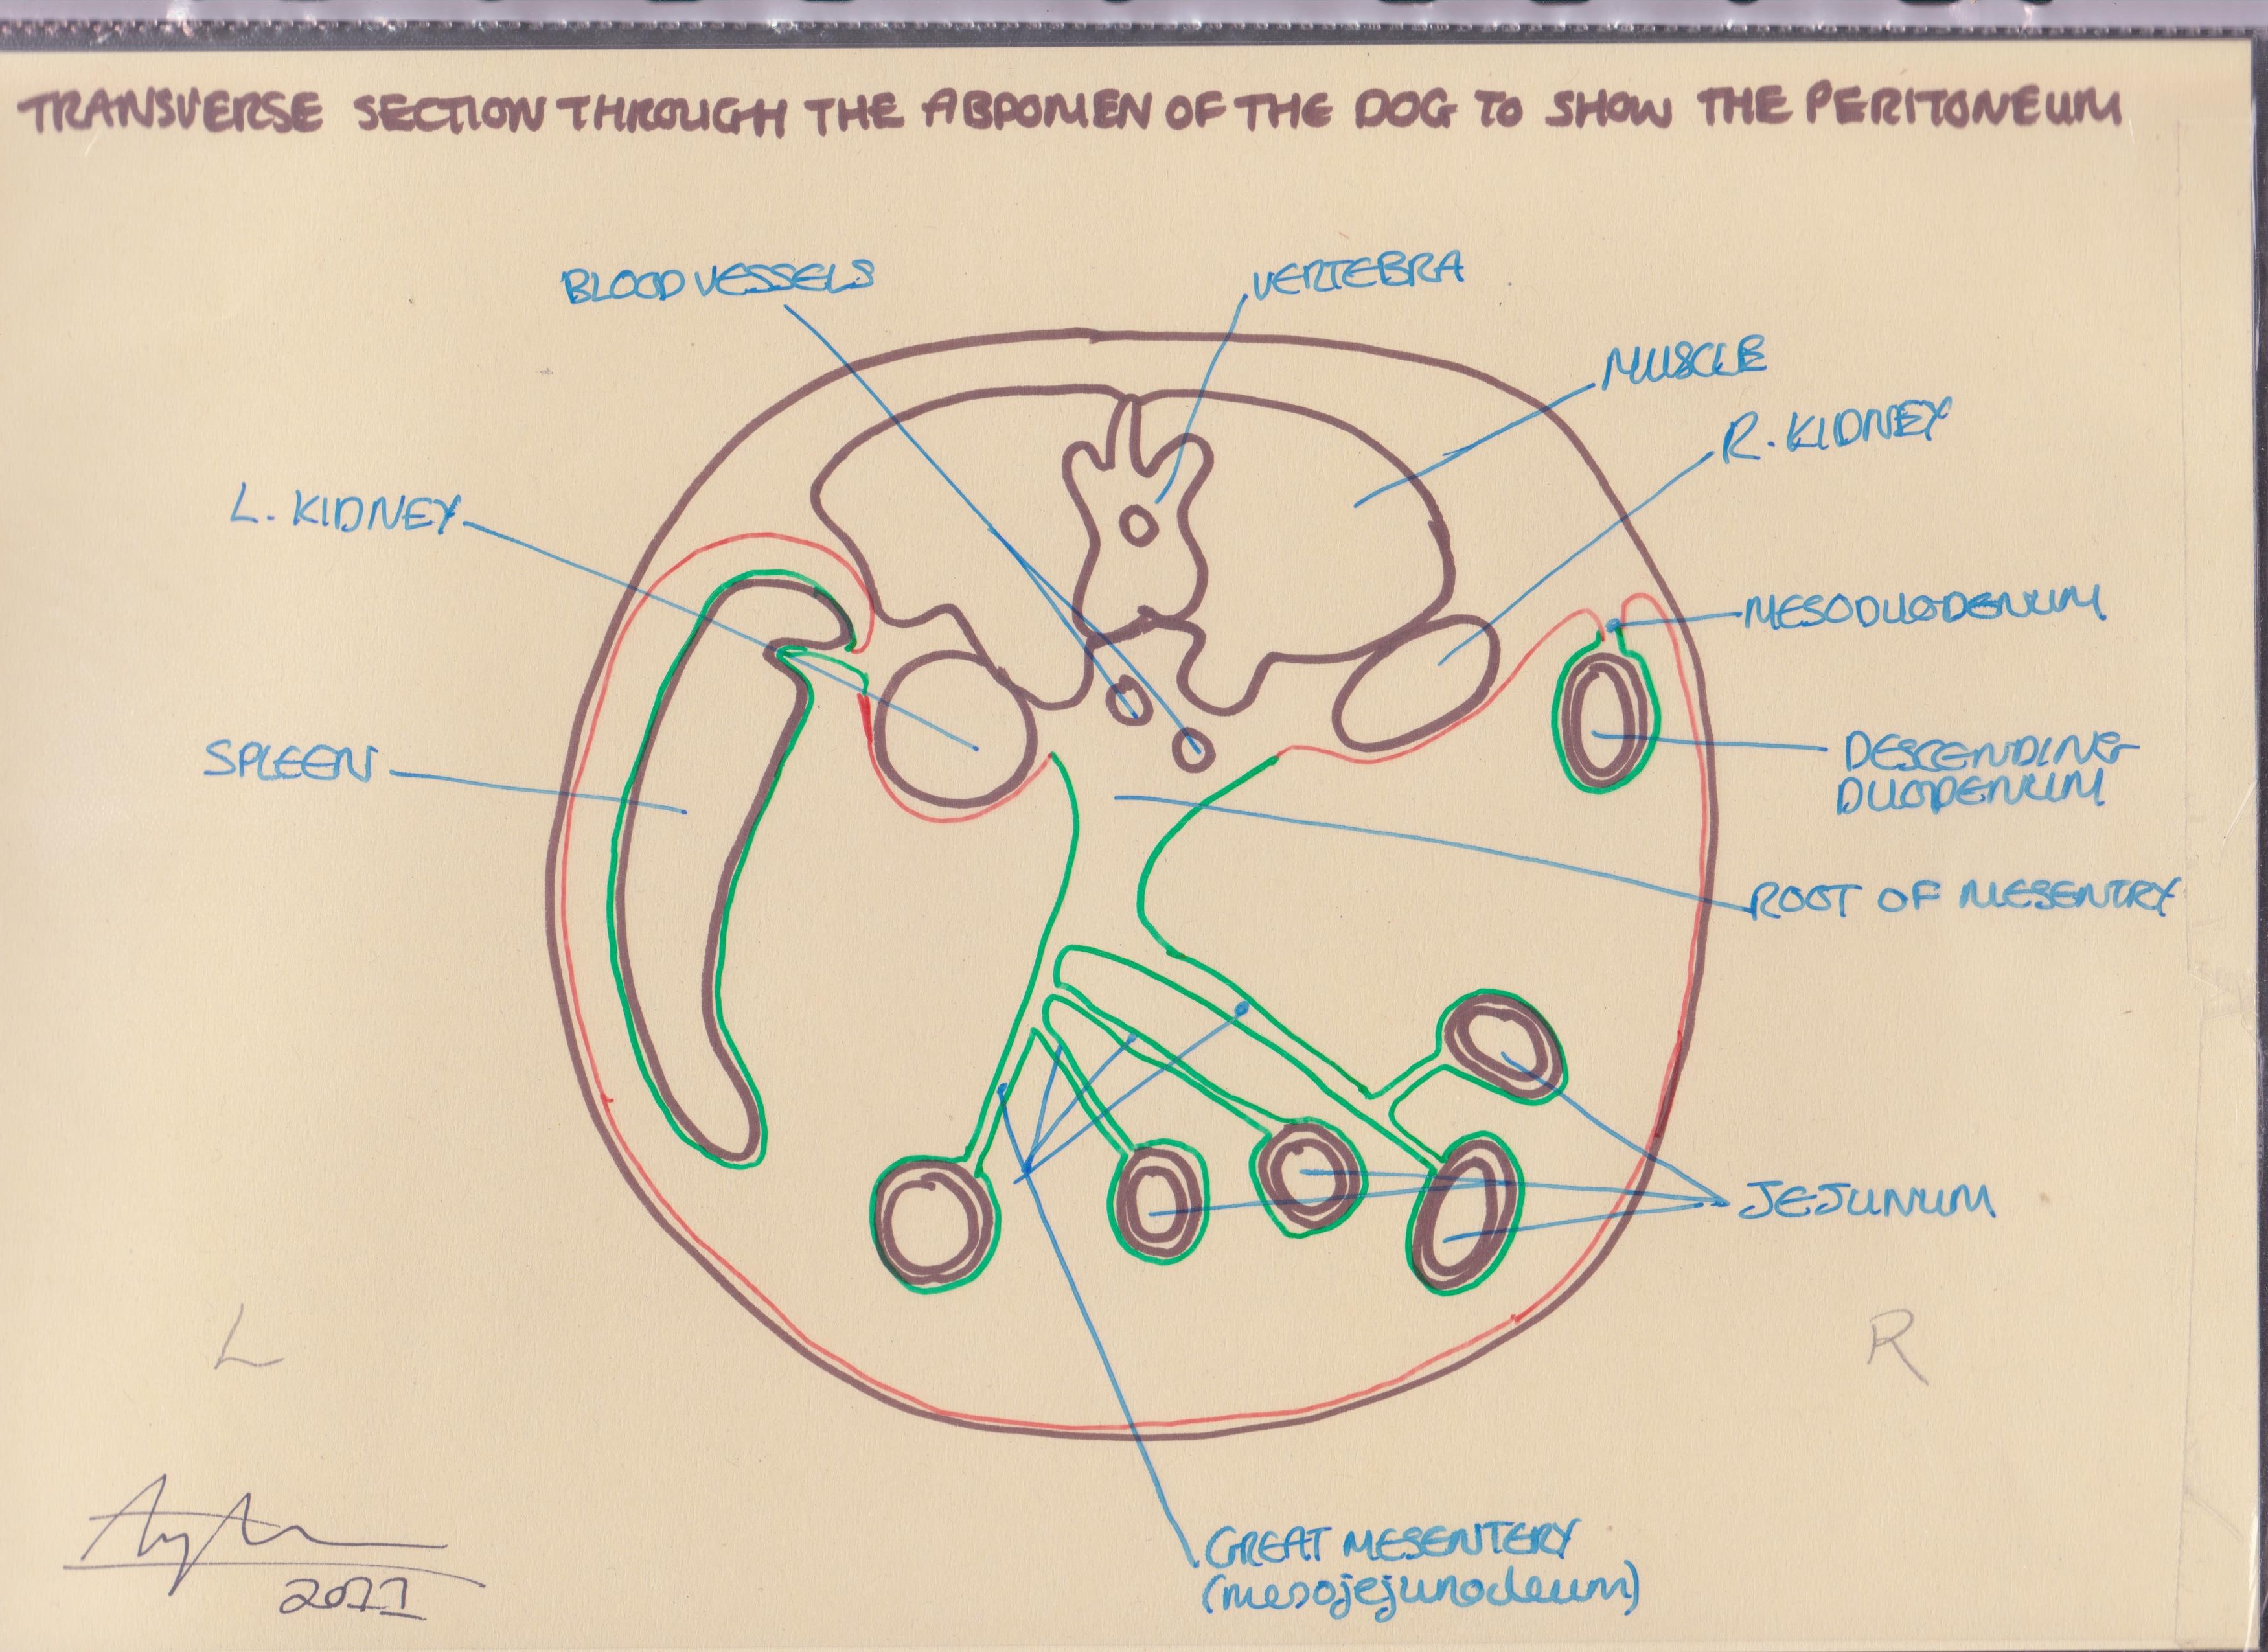 TRANSVERSE SECTION THROUGH THE ABDOMEN OF THE DOG TO SHOW THE PERITONEUM
BLOOD VESSELS
VERTEBRA
MUSCLE
R. KIDNEY
L. KIDNEY
MESODUODENUM
SPLEEN
DESCENDING
DUODENUM
ROOT OF MESENTRY
JEJUNUM
L
R
GREAT MESENTERY
(mesojejunoileum)
2011